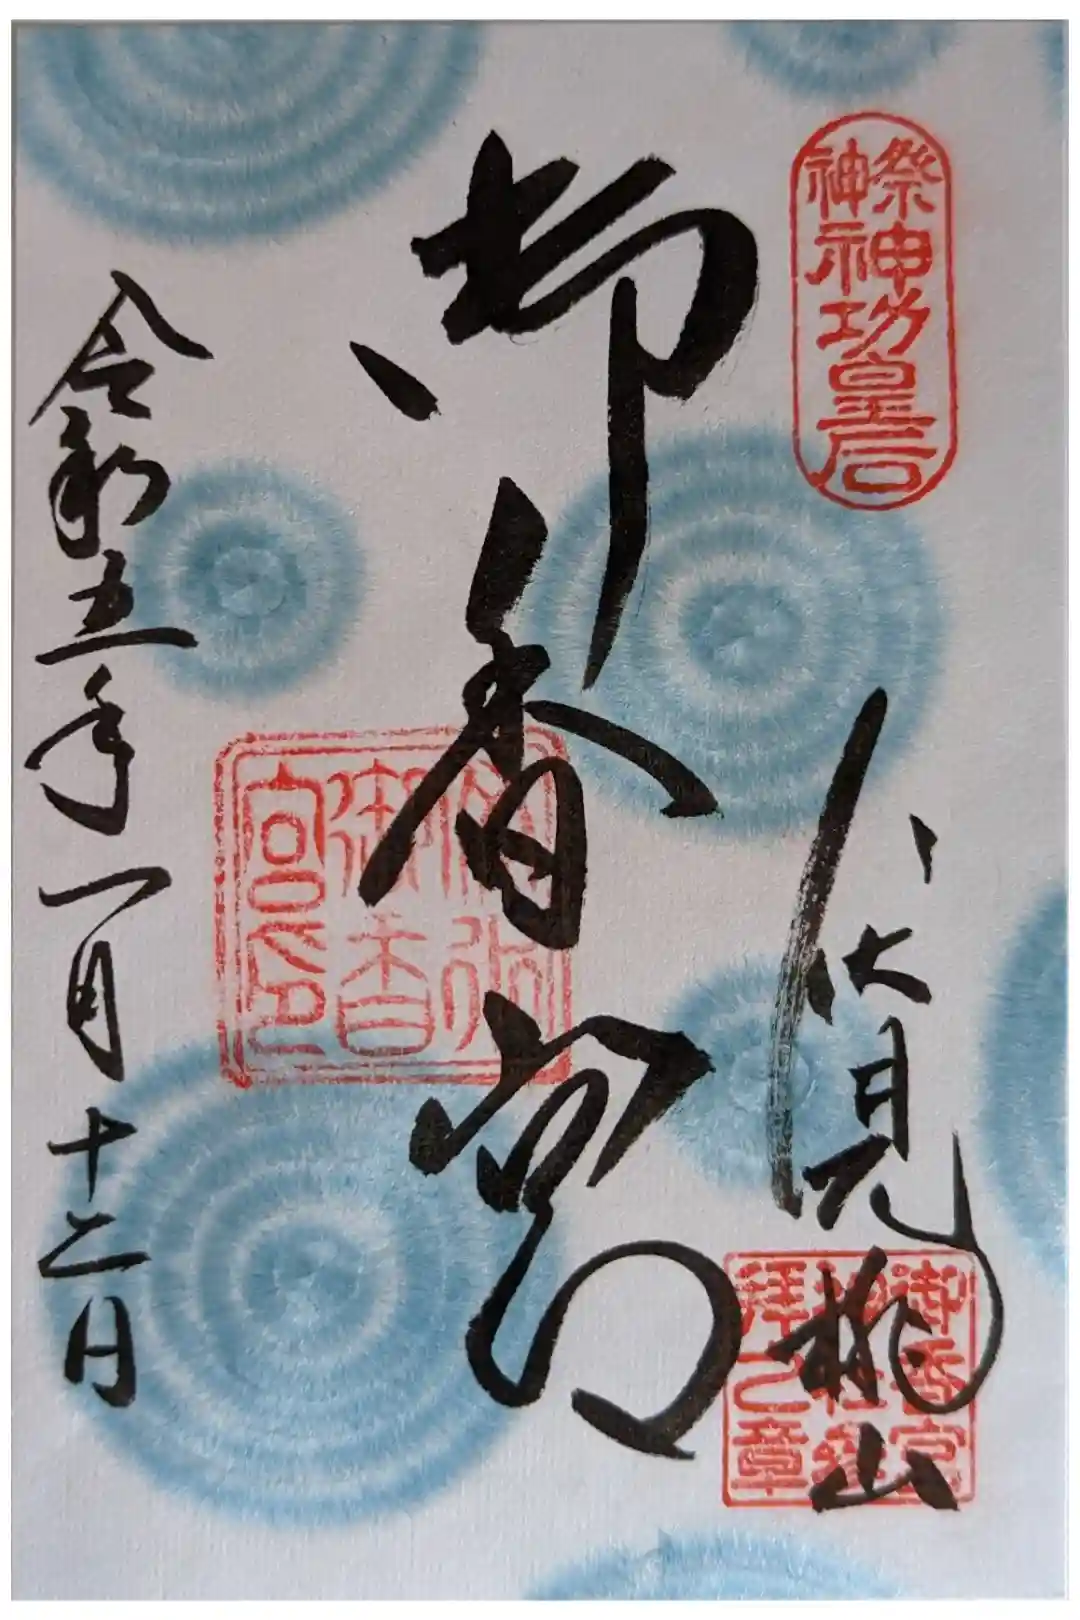 祭神
神功皇后
伏見桃山
御香宮
神社参
拝之章
御香宮
御香
宮印
令和五年一月十二日